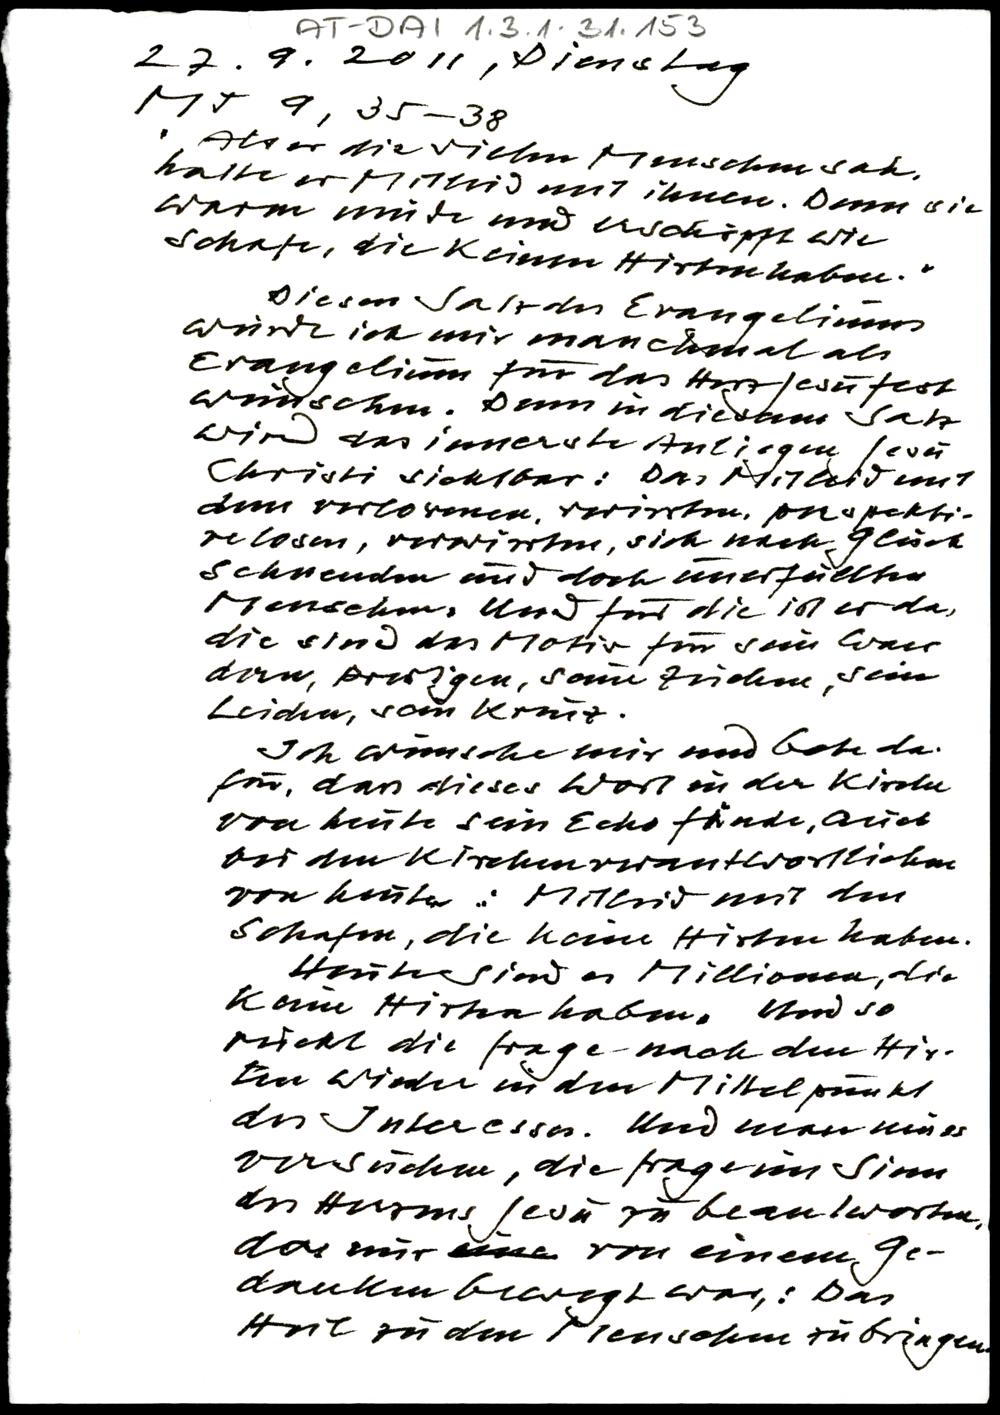 AT-DAI 1.3.1.31.153
27.9.2011, Dienstag
Mt 9, 35-38
"Als er die vielen Menschen sah,
hatte er Mitleid mit ihnen. Denn sie
waren müde und erschöpft wie
Schafe, die keinen Hirten haben."
Diesen Satz des Evangeliums
würde ich mir manchmal als
Evangelium für das Herz Jesu fest
wünschen. Denn in diesem Satz
wird das innerste Anliegen Jesu
Christi sichtbar: Das Mitleid mit
den verlorenen, verirrten, perspekti-
velosen, verwirrten, sich nach Glück
sehnenden und doch unerfüllten
Menschen. Und für die ist er da,
die sind das Motiv für sein Wan
dern, Predigen, seine Zeichen, sein
Leiden, sein Kreuz.
Ich wünsche mir und bete da-
für, dass dieses Wort in der Kirche
von heute sein Echo fände, auch
bei den Kirchenverantwortlichen
von heute: Mitleid mit den
Schafen, die keine Hirten haben.
Heute sind es Millionen, die
keine Hirten haben. Und so
rückt die Frage nach den Hir-
ten wieder in den Mittelpunkt
des Interesses. Und man muss
versuchen, die Frage im Sinn
des Herzens Jesu zu beantworten,
das nur eine von einem Ge-
danken bewegt war,: Das
Heil zu den Menschen zu bringen.